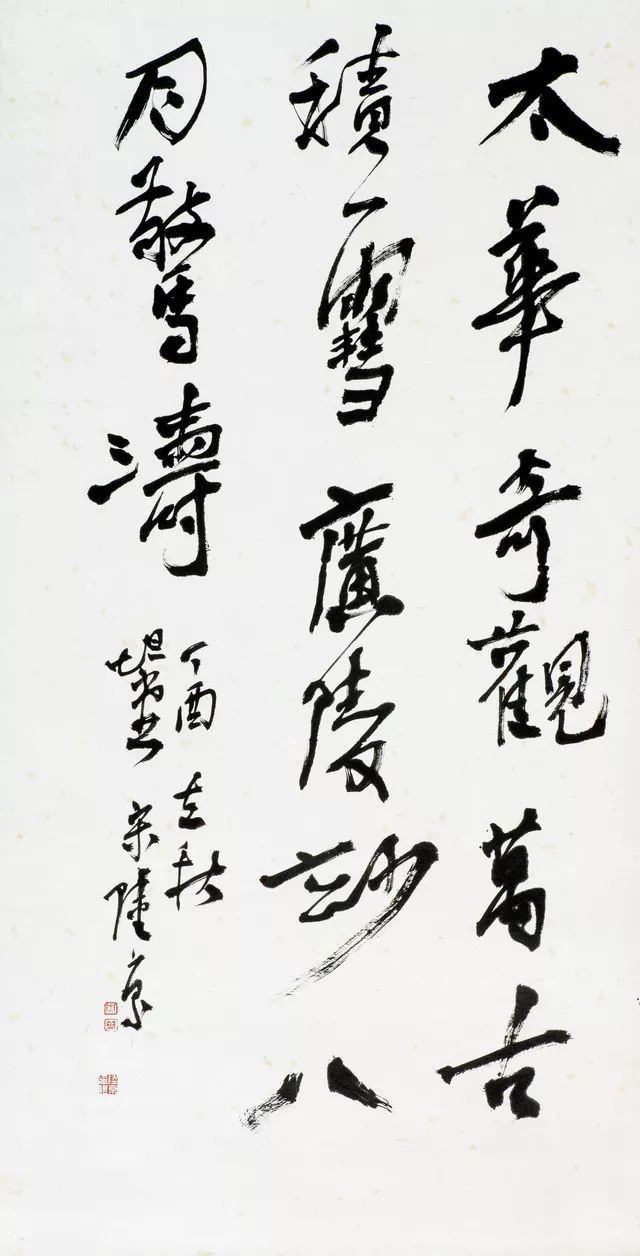 太華奇觀萬古
積雪廣陵妙八
月驚濤
丁酉立秋
宋陸京